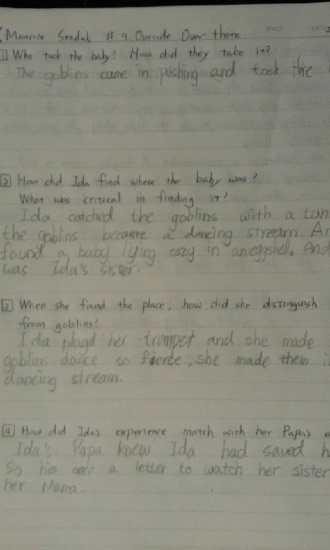 Maurice Sendak # 9 Outside Over there
1 Who took the baby? How did they take it?
The goblins came in pushing and took the
2 How did Ida find where the baby was?
What was critical in finding it?
Ida catched the goblins with a tun
the goblins became a dancing stream. An
found a baby lying cozy in an eggshell. And
was Ida's Sister.
3 When she found the place, how did she distinguish
from goblins?
Ida playd her trumpet and she made
goblins dance so fierce, she made them i
dancing stream.
4 How did Ida's experience match with her Papa's
Ida's Papa knew Ida had saved h
So he a letter to watch her sister
her Mama.